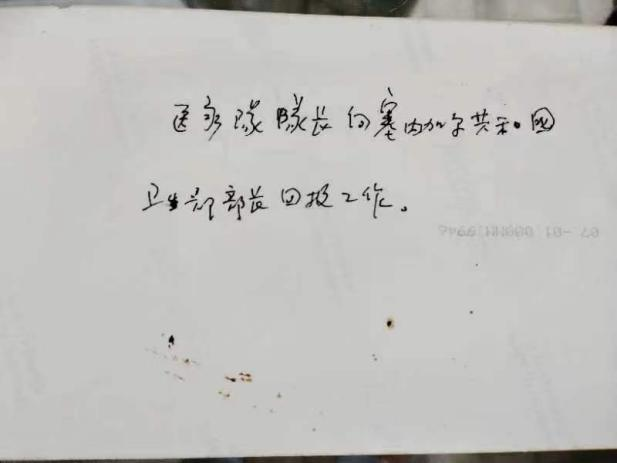 医疗隊隊长向塞内加尔共和国
卫生部部长回报工作。